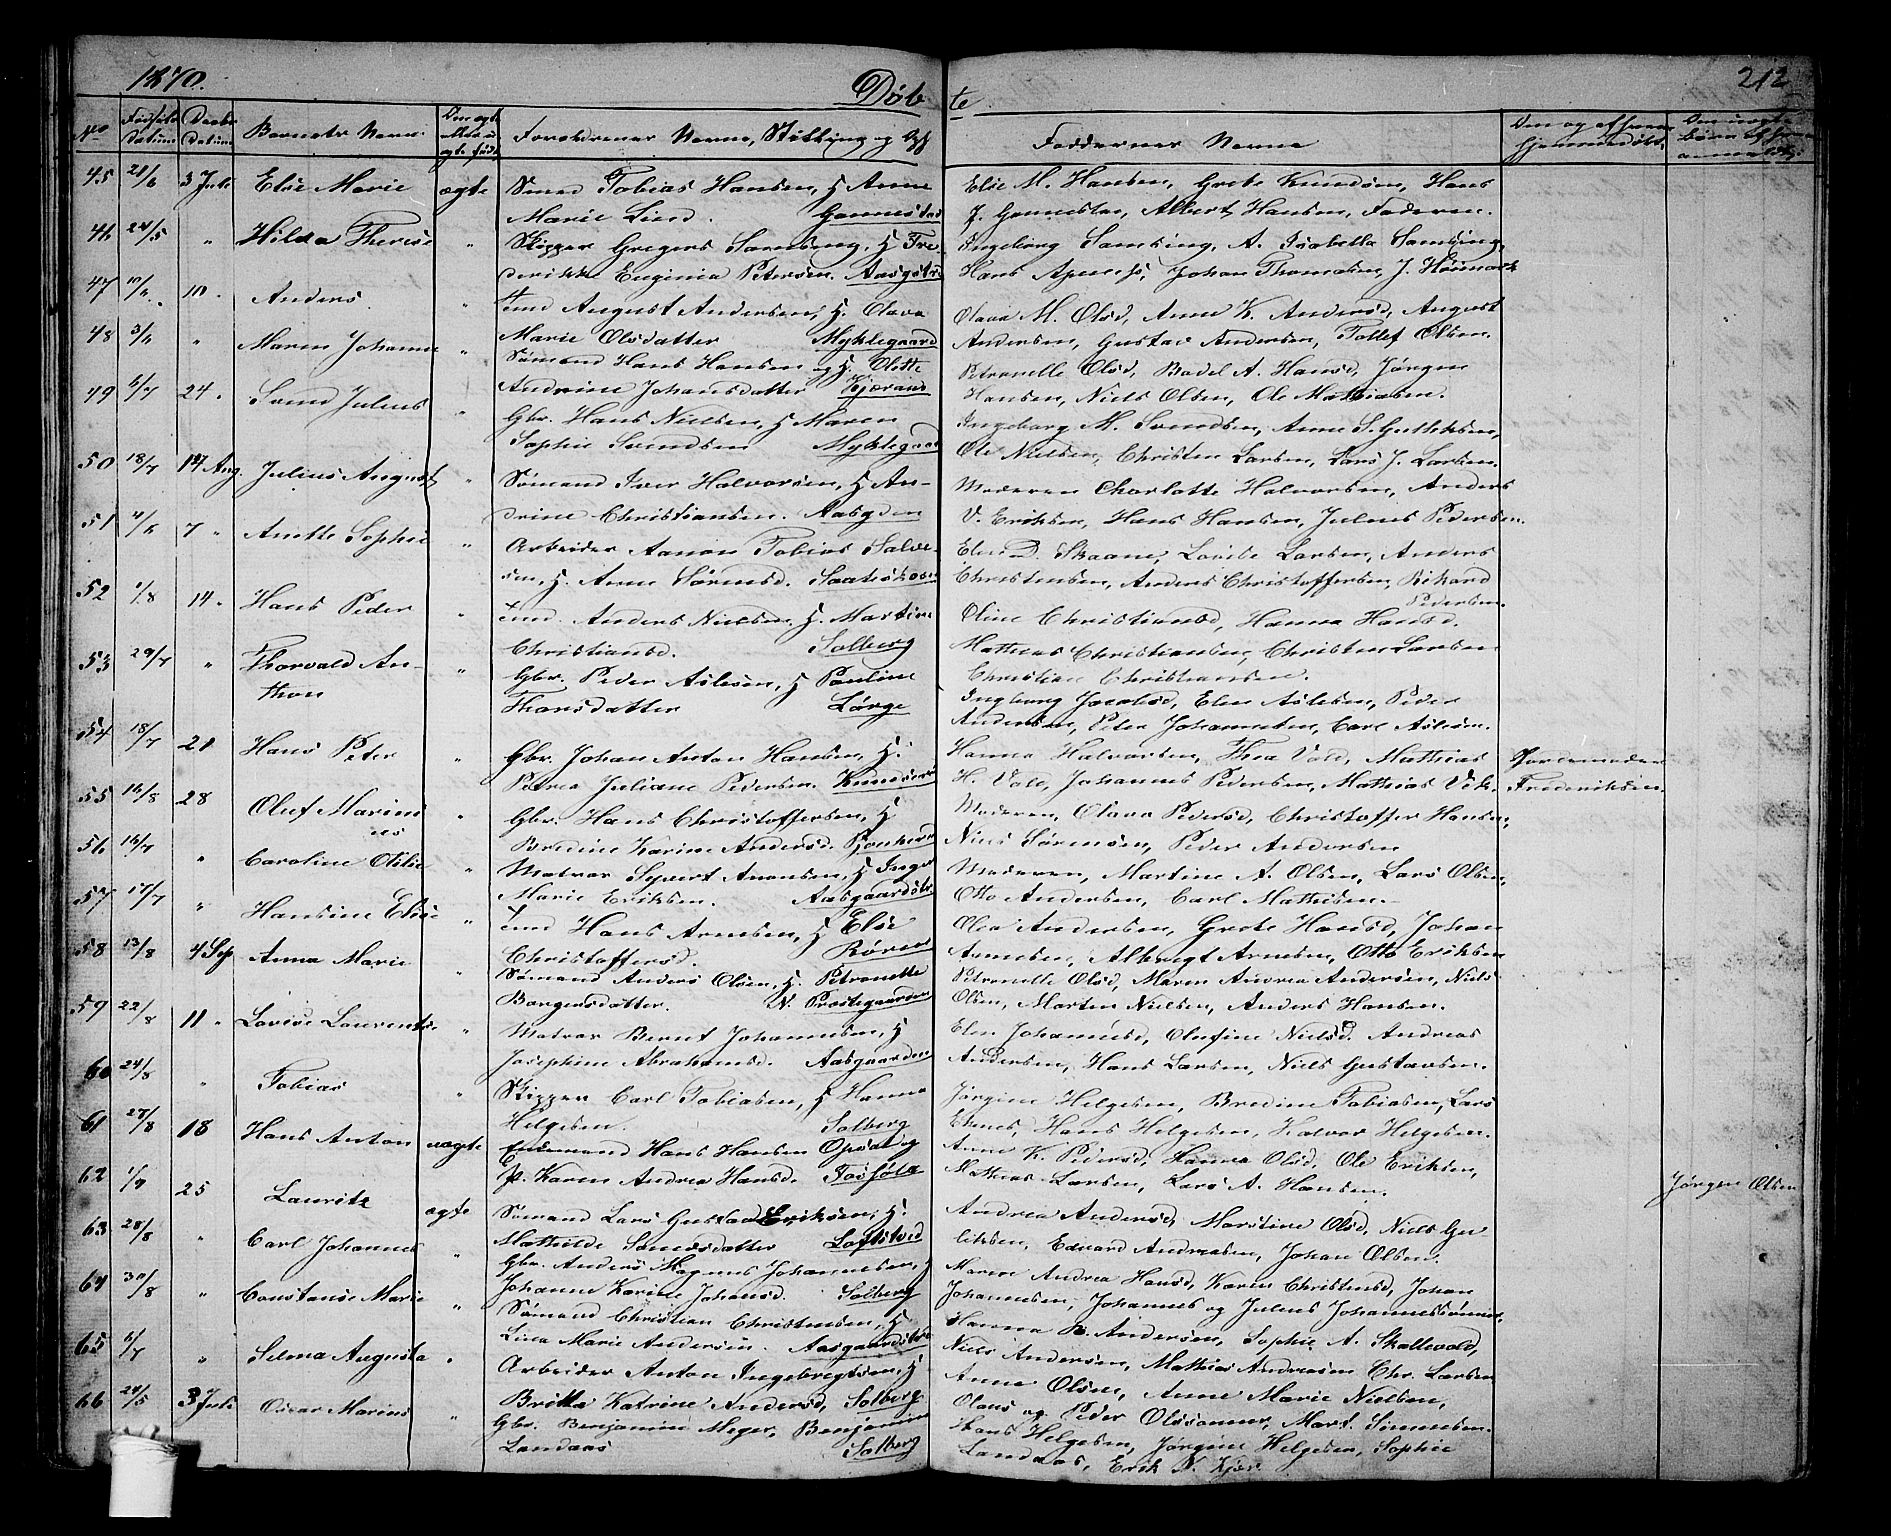 1870.
Døb te.
212
No
Fødsels Datum
Daabs Datum
Barnets Navn.
Om ægte eller uægte født
Forældrenes Navne, Stilling og
Faddernes Navne
45 28/6 3 Juli Elise Marie ægte Sømand Tobias Hansen, H Anne
Marie Lind. Gannestad
Elise M. Hansen, Grete Knudsen, Hans
J. Gannestad, Albert Hansen, Faderen.
46 24/5 " Hilda Therese " Skipper Gregers Samsing, H Fre
derikke Euginia Petersen. Aasgstrd
Ingeborg Samsing, A. Isabella Samsing,
Hans Johan Thomasen, J.
47 10/6. 10. Anders. " Tmd August Andersen, H. Olava
Marie Olsdatter Myklegaard
Olava M. Olsd, Anne K. Andersd, August
Andersen, Gustav Andersen, Tollef Olsen.
48 3/6 " Maren Johanne " Sømand Hans Hansen og H. Olette
Andrine Johansdatter Kjæraas
Petronelle Olsd, Bodel A. Hansd, Jørgen
Hansen, Niels Olsen, Ole Mathiasen.
49 6/7 24. Svend Julius " Gbr. Hans Nielsen, H Maren
Sophie Svendsen Myklegaard
Ingeborg M. Svendsen, Anne S.
Ole Nielsen, Christen Larsen, Lars J. Larsen.
50 18/7 14 Aug. Julius August " Sømand Iver Halvorsen, H An-
drine Christiansen. Aasgden
Moderen Charlotte Halvorsen, Anders
V. Eriksen, Hans Hansen, Julius Pedersen.
51 4/6 7 " Anette Sophie " Arbeider Aanon Tobias Salve-
sen, H. Anne Sørensd.
Skaane, Lovise Larsen, Anders
Christensen, Anders Christoffersen, Rikard
Pedersen.
52 1/8 14. Hans Peder " Tmd. Anders Nielsen, H. Martine
Christiansd. Solberg
Oline Christiansd, Hanna Hansd.
Mathias Christiansen, Christen Larsen
Christian Christiansen.
53 29/7 " Thorvald An-
thon " Gbr. Peder Aslesen, H Pauline
Thorsdatter Lørge
Ingborg Jacobsd, Elen Aslesen, Peder
Andersen, Peter Johannesen, Carl Aslesen.
54 18/7 21 Hans Peter " Gbr. Johan Anton Hansen, H.
Petrea Juliane Pedersen.
Hanna Halvorsen, Thea Vold, Mathias
H. Vold, Johannes Pedersen, Mathias Vik.
Jordemoder
Frederiksen.
55 16/8 28 Oluf Marinius " Gbr. Hans Christoffersen, H
Bredine Karine Andersd.
Moderen, Olava Pedersd, Christoffer Hansen,
Niels Sørensen, Peder Andersen
56 16/7 " Caroline Otilie " Matros Syvert Aronsen, H Inger
Marie Eriksen. Aasgaardstr
Moderen, Martine A. Olsen, Lars Olsen,
Otto Andersen, Carl Mathisen.
57 17/7 " Hansine Elise " Tmd Hans Arnesen, H Else
Christoffersd. Røren
Olea Andersen, Grete Hansd, Johan
Arnesen, Albregt Arnesen, Otto Eriksen
58 13/8 4 Sep Anna Marie " Sømand Anders Olsen, H. Petronette
Borgersdatter. N. Præstegaarden
Petronelle Olsd, Maren Andrea Andersen, Niels
Olsen, Morten Nielsen, Anders Hansen.
59 22/8 11 " Lovise Laurentse " Matros Bernt Johannesen, H
Josephine Abrahamsd. Aasgaarden
Elen Johannesd, Olufine Nielsd. Andreas
Andersen, Hans Larsen, Niels Gustavsen.
60 24/8 " Tobias " Skipper Carl Tobiasen, H Hanna
Helgesen. Solberg
Jørgine Helgesen, Bredine Tobiasen, Lars
Hans Helgesen, Halvor Helgesen.
61 27/8 18 Hans Anton uægte Hans Hansen Opsal og
P. Karen Andrea Hansd.
Anne K. Pedersd, Hanna Olsd, Ole Eriksen,
Mathias Larsen, Lars A. Hansen.
Jørgen Olsen
62 1/9 25 Lauritz ægte Sømand Lars Gustav Eriksen, H.
Mathilde
Andrea Andersd, Martine Olsd, Niels Gu
Edvard Andreasen, Johan Olsen.
63 28/8 " Carl Johannes " Gbr. Anders Magnus Johannesen, H
Johanne Karine Johansd. Solberg
Maren Andrea Hansd, Karen Christensd, Johan
Johannesen, Johannes og Julius Johannessønner.
64 30/8 " Constanse Marie " Sømand Christian Christensen, H
Lina Marie Andersen. Aasgaardstr
Hanna B. Andersen, Sophie A. Skallevold,
Niels Andersen, Mathias Andreasen Chr. Larsen
65 6/7 " Selma Augusta " Arbeider Anton Ingebregtsen, H
Britta Katrine Andersd, Solberg
Anne Olsen, Anne Marie Nielsen,
Olaus og Peder Olssønner, Mart. Simmesen
66 24/5 3 Juli Oscar Marius " Gbr. Benjamine Meyer, Benjamin
Landaas Solberg
Hans Helgesen, Jørgine Helgesen, Sophie
Landaas, Erik N. Kjær